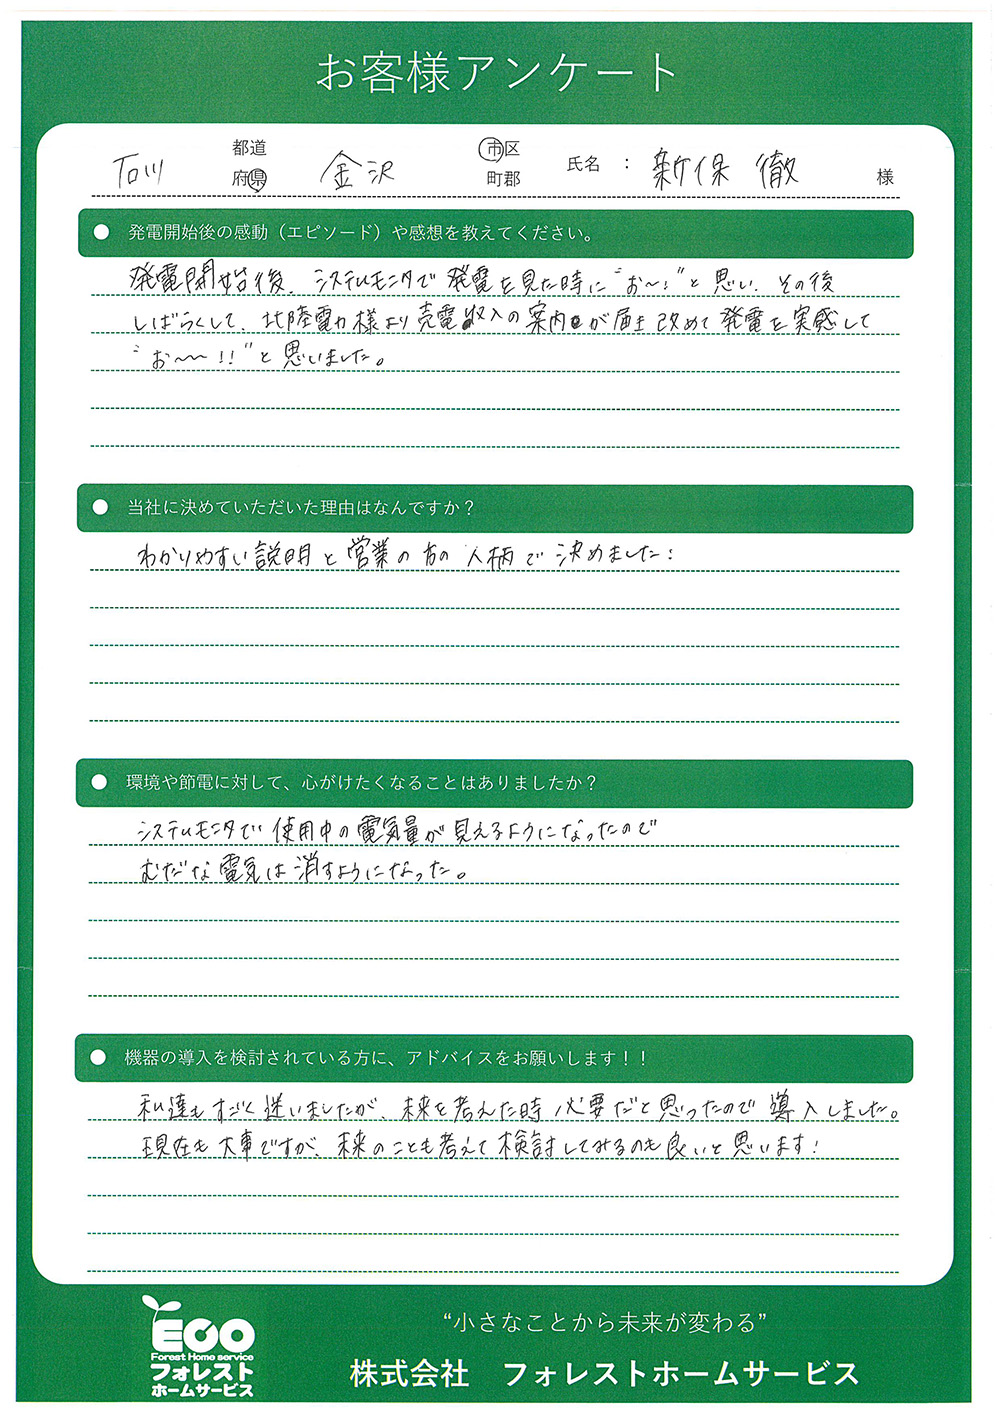 お客様アンケート
石川 都道府県 金沢 市区町郡 氏名 : 新保 徹 様
● 発電開始後の感動（エピソード）や感想を教えてください。
発電開始後、システムモニタで発電を見た時に"お〜!"と思い、その後
しばらくして、北陸電力様より売電収入の案内が届き改めて発電を実感して
"お〜〜!!"と思いました。
● 当社に決めていただいた理由はなんですか？
わかりやすい説明と営業の方の人柄で決めました!
● 環境や節電に対して、心がけたくなることはありましたか？
システムモニタで使用中の電気量が見えるようになったので
むだな電気は消すようになった。
● 機器の導入を検討されている方に、アドバイスをお願いします！！
私達もすごく迷いましたが、未来を考えた時必要だと思ったので導入しました。
現在も大事ですが、未来のことも考えて検討してみるのも良いと思います!
ECO
Forest Home service
フォレスト
ホームサービス
“小さなことから未来が変わる”
株式会社 フォレストホームサービス